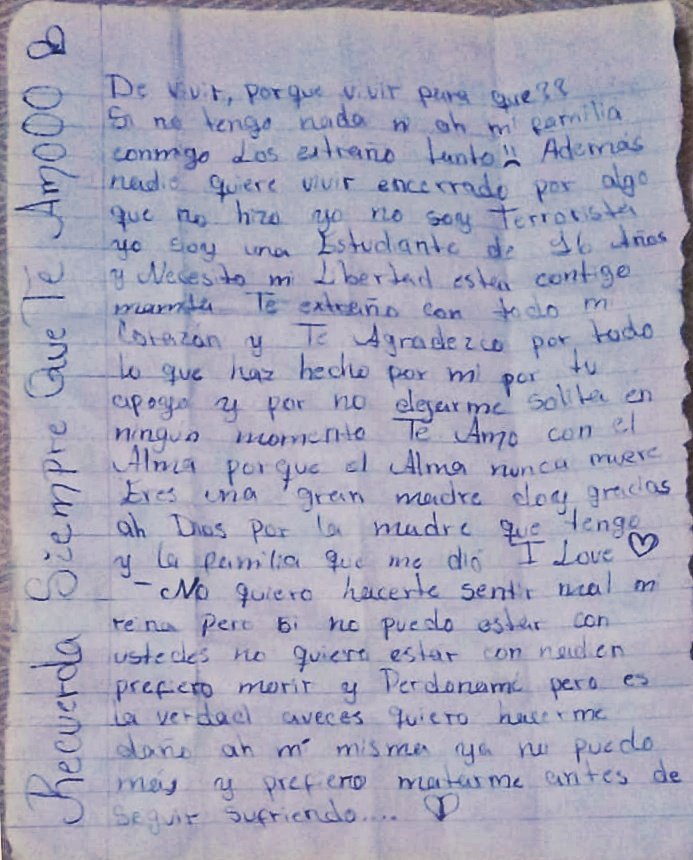 De vivir, porque vivir para que??
Si no tengo nada ni ah mi familia
conmigo Los extraño tanto!! Además
nadie quiere vivir encerrado por algo
que no hizo yo no soy Terrorista
yo soy una Estudiante de 16 Años
y Necesito mi Libertad estar contigo
mamita Te extraño con todo mi
Corazón y Te Agradezco por todo
lo que haz hecho por mi por tu
apoyo y por no dejarme solita en
ningun momento Te Amo con el
Alma porque el Alma nunca muere
Eres una gran madre doy gracias
ah Dios por la madre que tengo
y la familia que me dió I Love ♡
- No quiero hacerte sentir mal mi
reina Pero si no puedo estar con
ustedes no quiero estar con nadien
prefiero morir y Perdoname pero es
la verdad aveces quiero hacerme
daño ah mi misma ya no puedo
más y prefiero matarme antes de
seguir sufriendo.... ♡
Recuerda Siempre Que Te Amooo